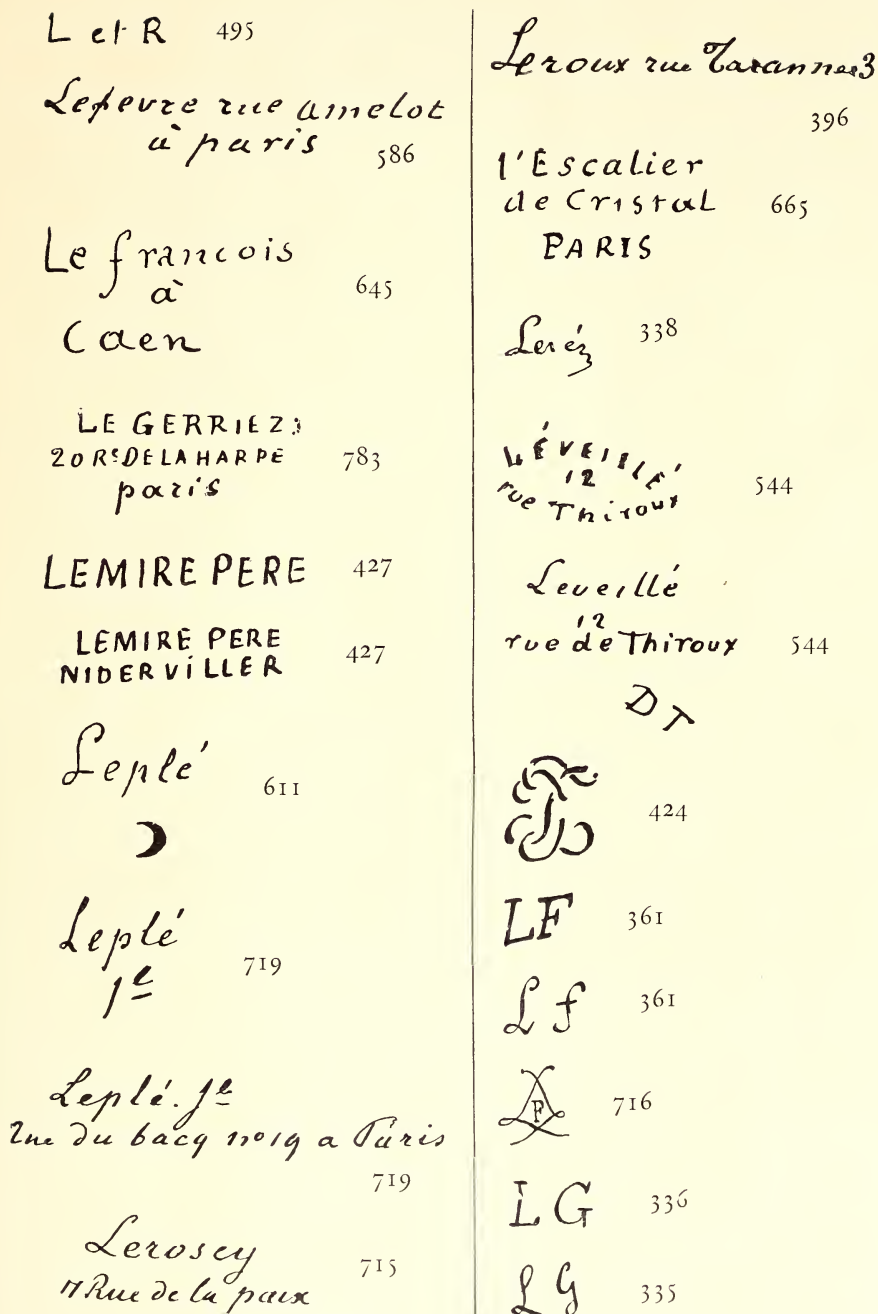 L et R 495
Lefevre rue amelot
à paris 586
Le francois
à 645
Caen
LE GERRIEZ
20 Rᵉ DE LA HARPE 783
paris
LEMIRE PERE 427
LEMIRE PERE
NIDERVILLER 427
Leplé
611
Leplé
Jᵉ 719
Leplé. Jᵉ
rue du bacq nº 19 a Paris
719
Lerosey
Rue de la paix 715
Leroux rue Tarannes 3
396
l'Escalier
de Cristal 665
PARIS
Leréz 338
LÉVEILLÉ
12 544
rue Thiroux
Leveillé
12
rue de Thiroux 544
DT
424
LF 361
Lf 361
716
LG 336
LG 335